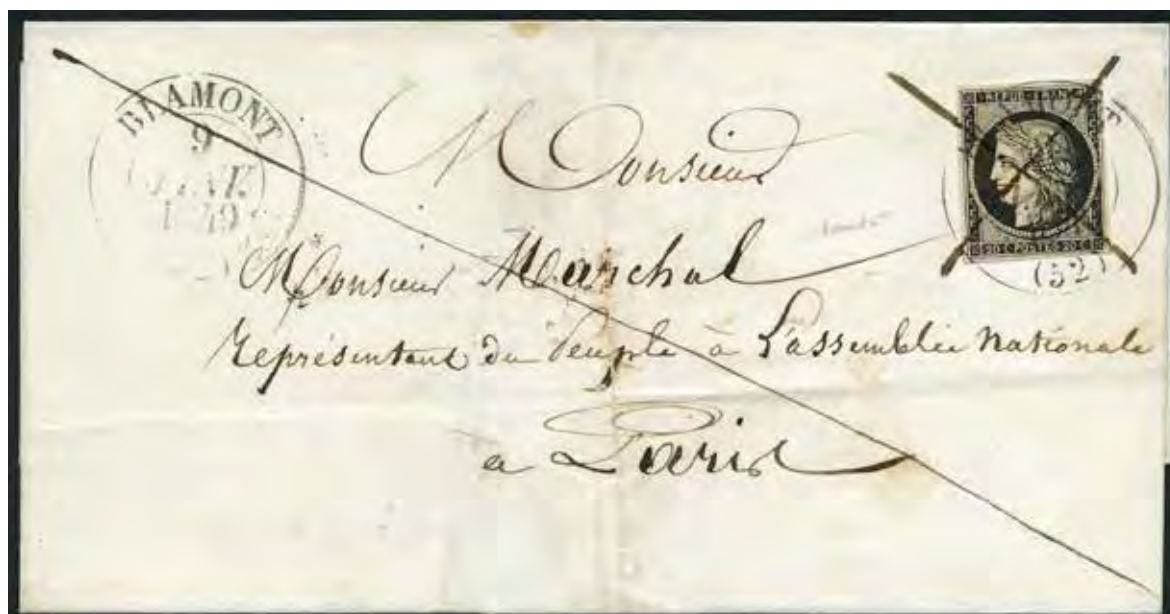 BLAMONT
9
JANV.
1849
REPUB. FRANC.
20 C POSTES 20 C
(52)
Monsieur
Monsieur Marchal
Représentant du Peuple à L'assemblée Nationale
a Paris